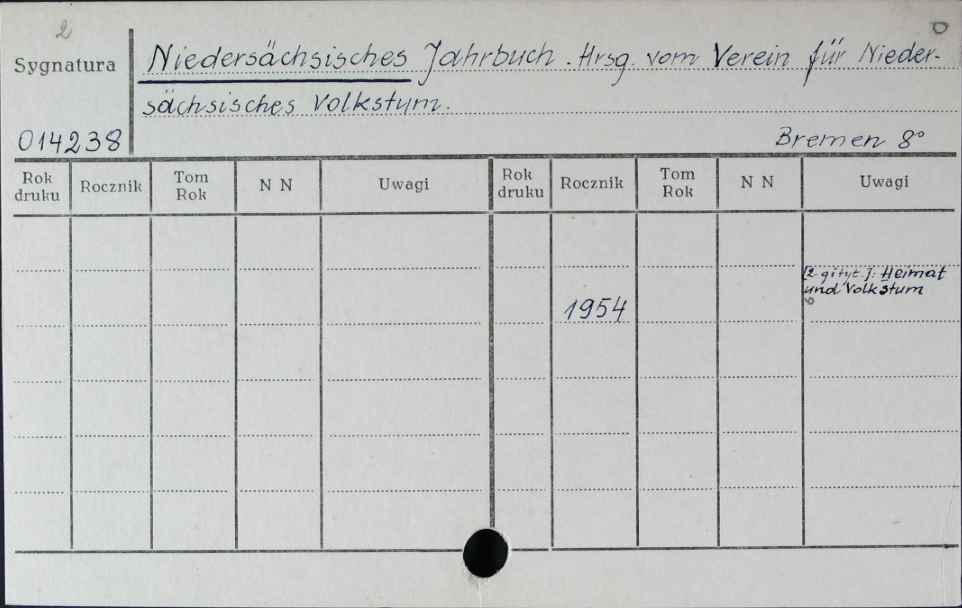 2
Sygnatura
Niedersächsisches Jahrbuch. Hrsg. vom Verein für Nieder-
sächsisches Volkstum.
014238
Bremen 8°
Rok druku Rocznik Tom Rok N N Uwagi Rok druku Rocznik Tom Rok N N Uwagi
[2 gi tyt.]: Heimat
und Volkstum
1954